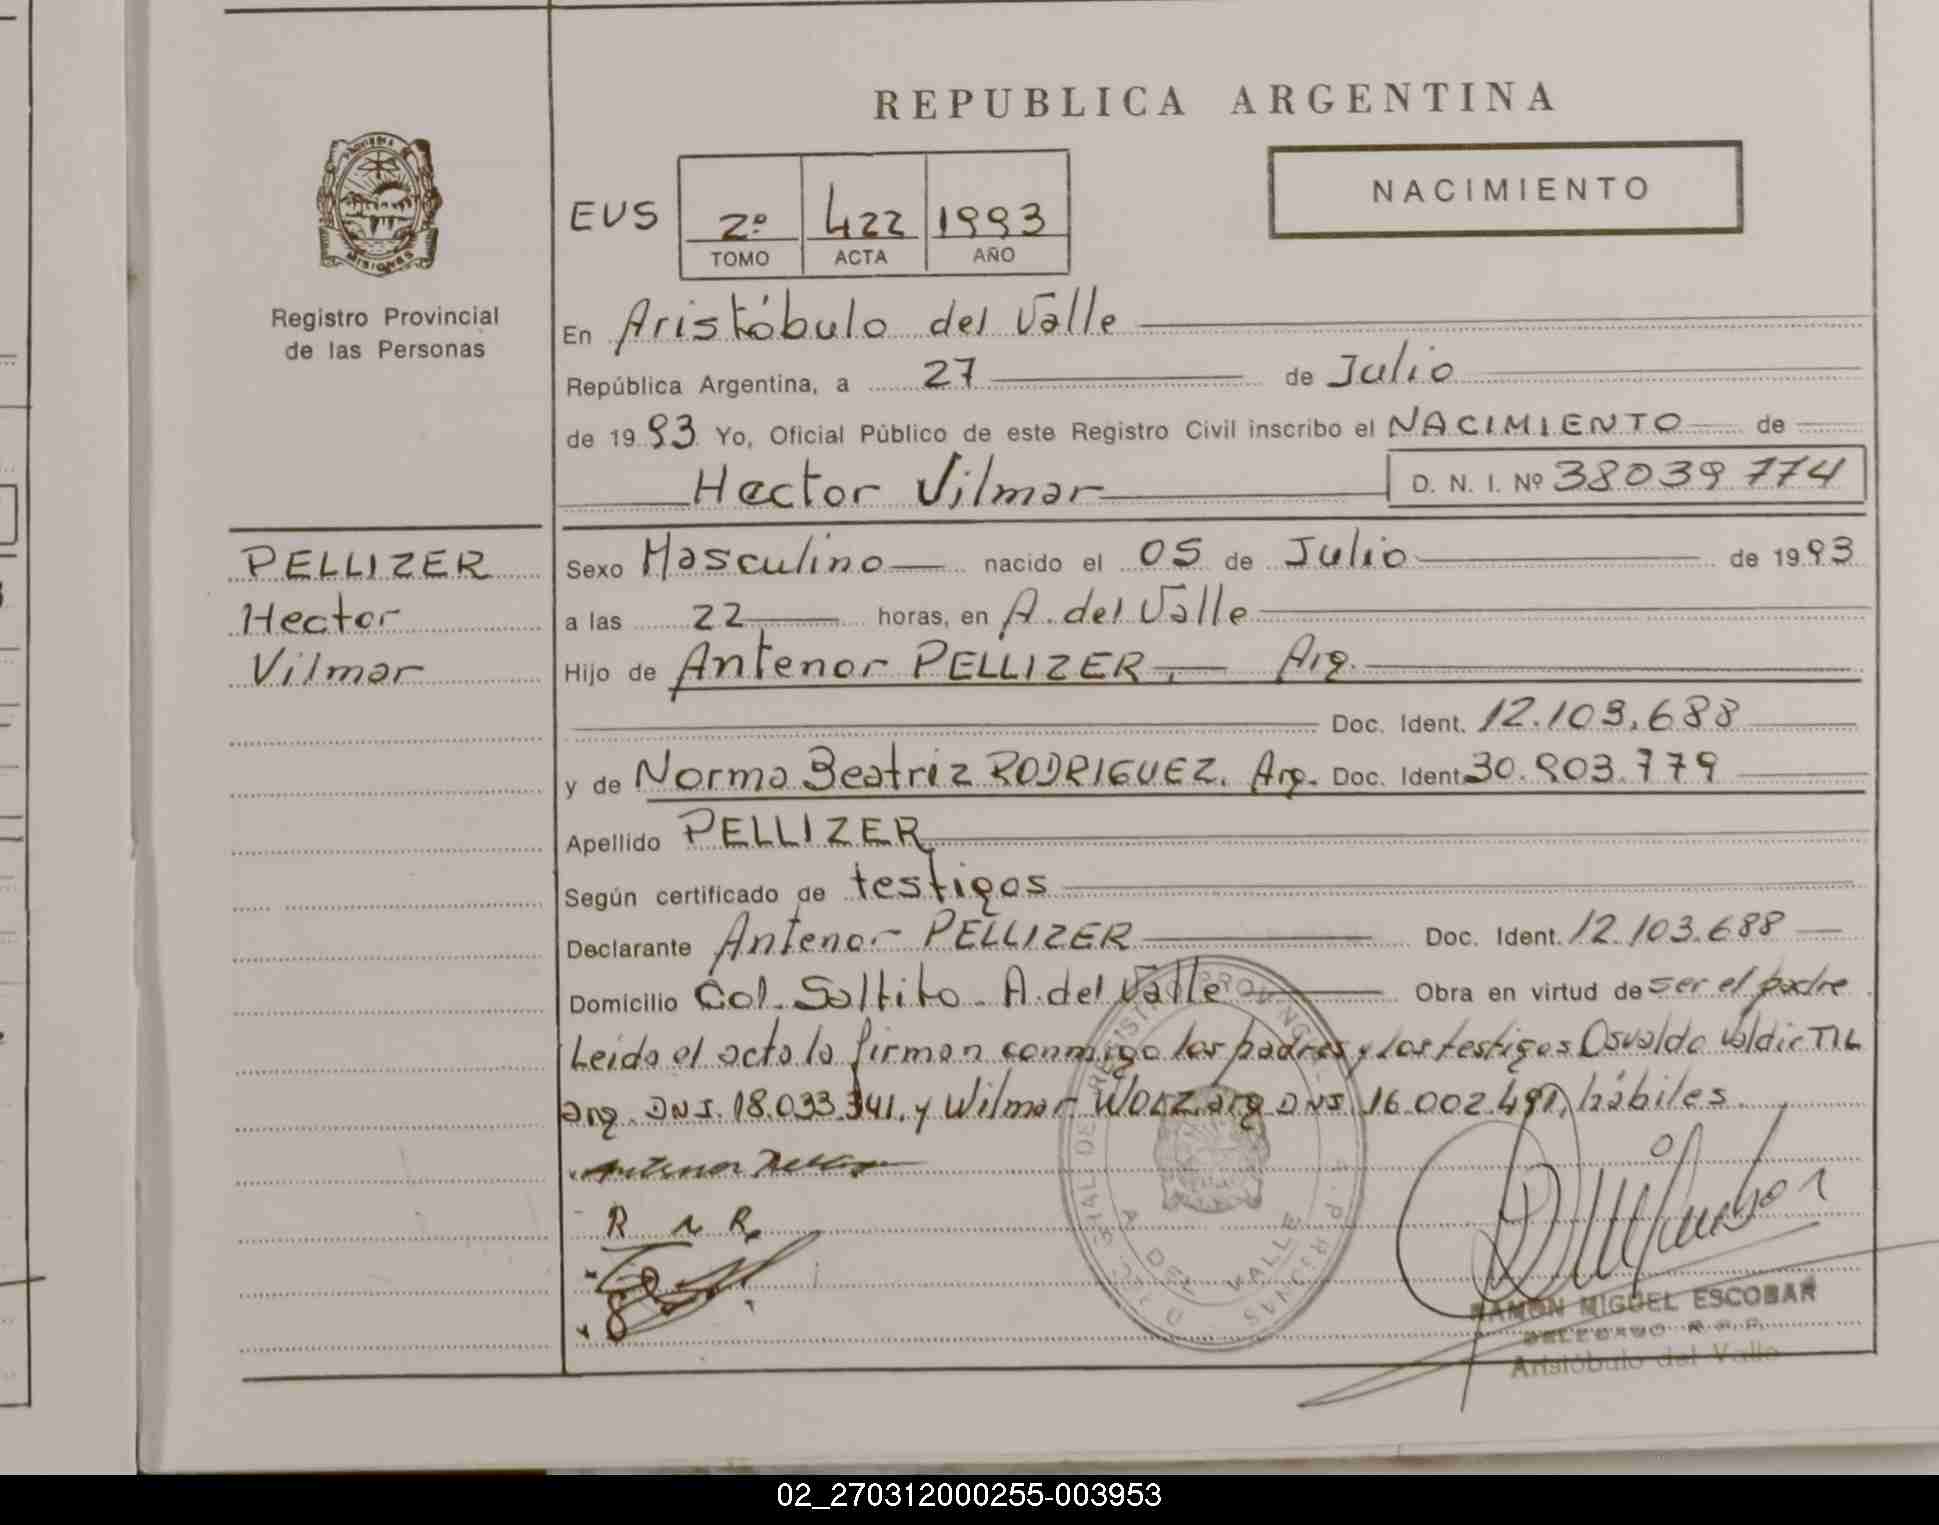 REPUBLICA ARGENTINA
NACIMIENTO
EUS
2º 422 1993
TOMO ACTA AÑO
PROVINCIA DE
MISIONES
Registro Provincial
de las Personas
En Aristóbulo del Valle
República Argentina, a 27 de Julio
de 1993 Yo, Oficial Público de este Registro Civil inscribo el NACIMIENTO de
Hector Vilmar D. N. I. Nº 38039774
PELLIZER
Hector
Vilmar
Sexo Masculino nacido el 05 de Julio de 1993
a las 22 horas, en A. del Valle
Hijo de Antenor PELLIZER, Arg.
Doc. Ident. 12.103.688
y de Norma Beatriz RODRIGUEZ. Arg. Doc. Ident 30.903.779
Apellido PELLIZER
Según certificado de testigos
Declarante Antenor PELLIZER Doc. Ident. 12.103.688
Domicilio Col. Saltito. A. del Valle Obra en virtud de ser el padre
Leida el acta la firman conmigo los padres y los testigos Osvaldo Valdir TIL
arg. DNI. 18.033.341. y Wilmar arg DNI. 16.002.491, hábiles.
R N R
A. DEL VALLE
RAMON MIGUEL ESCOBAR
DELEGADO R.P.P.
Aristóbulo del Valle
02_270312000255-003953